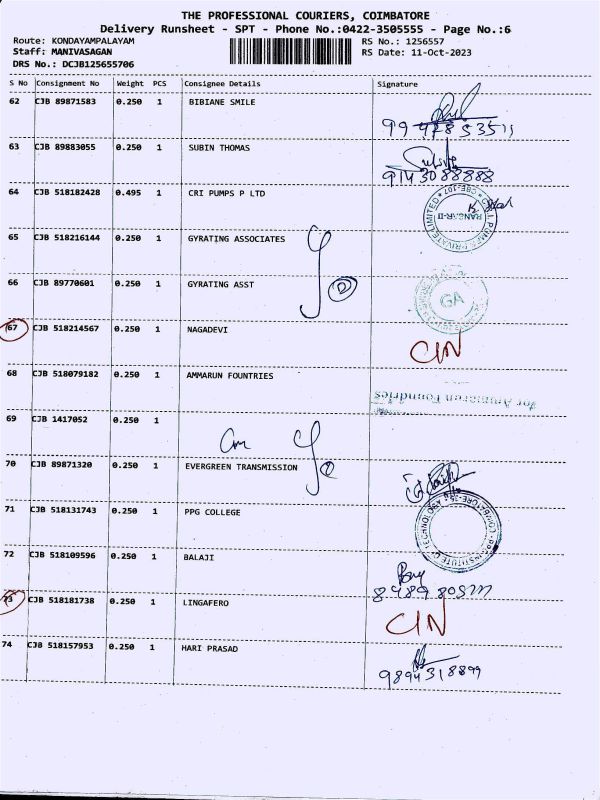 THE PROFESSIONAL COURIERS, COIMBATORE
Delivery Runsheet - SPT - Phone No.:0422-3505555 - Page No.:6
Route: KONDAYAMPALAYAM RS No.: 1256557
Staff: MANIVASAGAN RS Date: 11-Oct-2023
DRS No.: DCJB125655706
S No Consignment No Weight PCS Consignee Details Signature
62 CJB 89871583 0.250 1 BIBIANE SMILE
63 CJB 89883055 0.250 1 SUBIN THOMAS
9143088888
64 CJB 518182428 0.495 1 CRI PUMPS P LTD
65 CJB 518216144 0.250 1 GYRATING ASSOCIATES
66 CJB 89770601 0.250 1 GYRATING ASST
GA
67 CJB 518214567 0.250 1 NAGADEVI
C/N
68 CJB 518079182 0.250 1 AMMARUN FOUNTRIES
for Ammarun Foundries
69 CJB 1417052 0.250 1
70 CJB 89871320 0.250 1 EVERGREEN TRANSMISSION
71 CJB 518131743 0.250 1 PPG COLLEGE
72 CJB 518109596 0.250 1 BALAJI
73 CJB 518181738 0.250 1 LINGAFERO
C/N
74 CJB 518157953 0.250 1 HARI PRASAD
9894318899